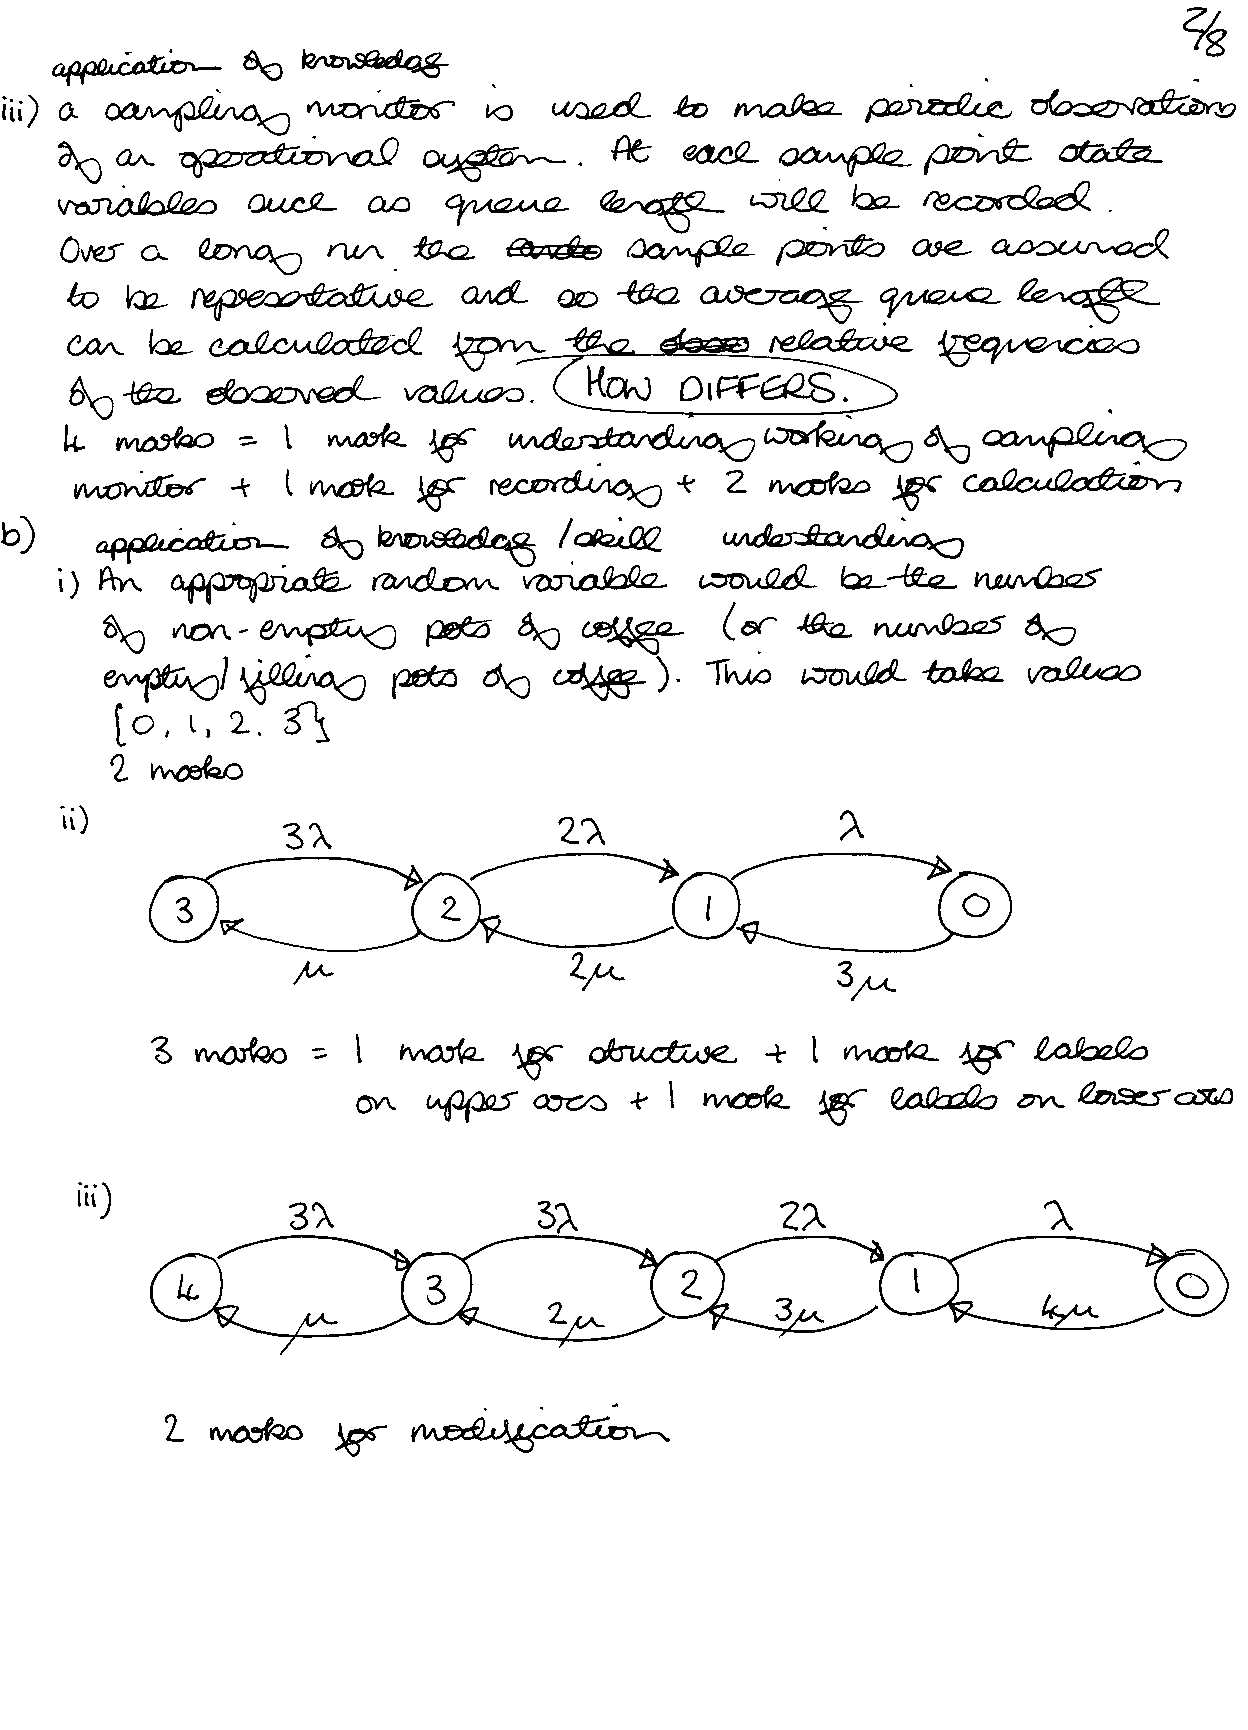 2/8
application of knowledge
iii) a sampling monitor is used to make periodic observations
of an operational system. At each sample point state
variables such as queue length will be recorded.
Over a long run the sample points are assumed
to be representative and so the average queue length
can be calculated from the relative frequencies
of the observed values. HOW DIFFERS.
4 marks = 1 mark for understanding working of sampling
monitor + 1 mark for recording + 2 marks for calculation
b) application of knowledge / skill understanding
i) An appropriate random variable would be the number
of non-empty pots of coffee (or the number of
empty/filling pots of coffee). This would take values
{0, 1, 2. 3}
2 marks
ii)
3λ 2λ λ
3 2 1 0
μ 2μ 3μ
3 marks = 1 mark for structure + 1 mark for labels
on upper arcs + 1 mark for labels on lower arcs
iii)
3λ 3λ 2λ λ
4 3 2 1 0
μ 2μ 3μ 4μ
2 marks for modification